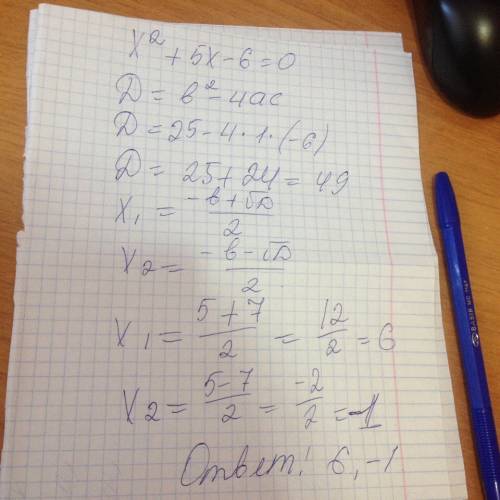 x² + 5x - 6 = 0
D = b² - 4ac
D = 25 - 4 · 1 · (-6)
D = 25 + 24 = 49
x₁ = (-b + √D) / 2
x₂ = (-b - √D) / 2
x₁ = (5 + 7) / 2 = 12 / 2 = 6
x₂ = (5 - 7) / 2 = -2 / 2 = -1
Ответ: 6, -1